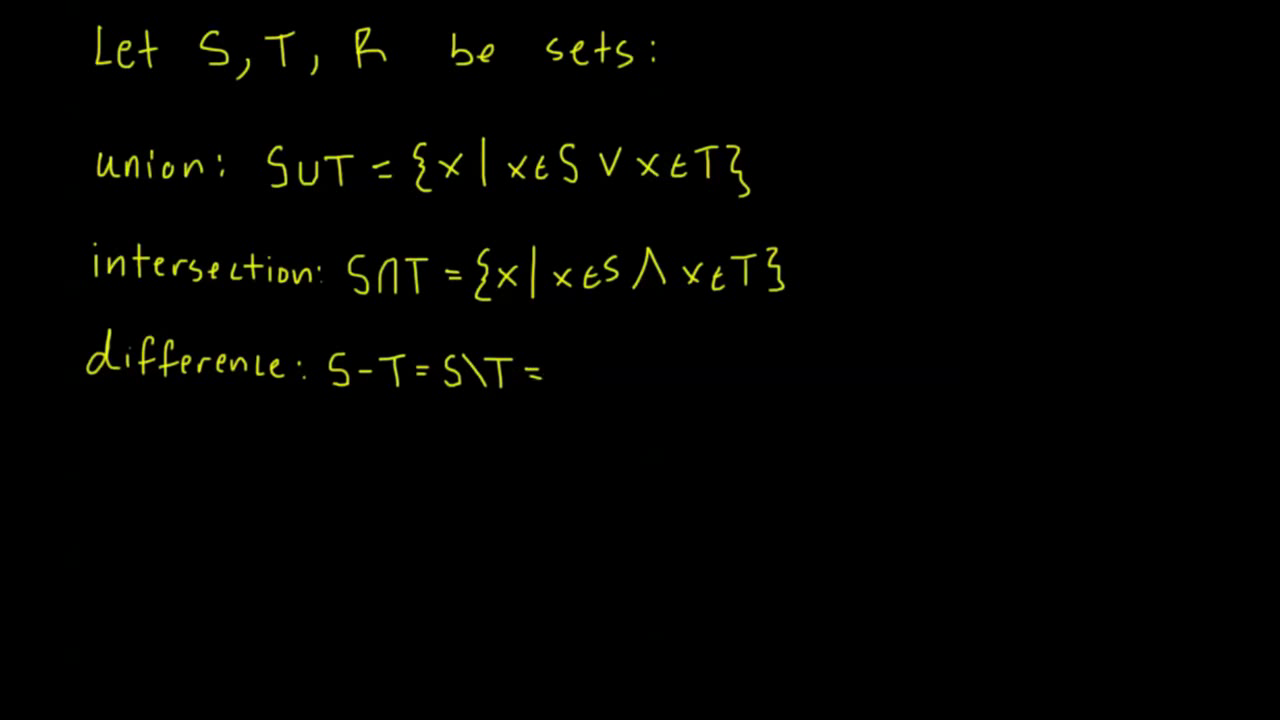 Let S, T, R be sets:
union: S∪T = {x | x∈S ∨ x∈T}
intersection: S∩T = {x | x∈S ∧ x∈T}
difference: S-T = S\T =